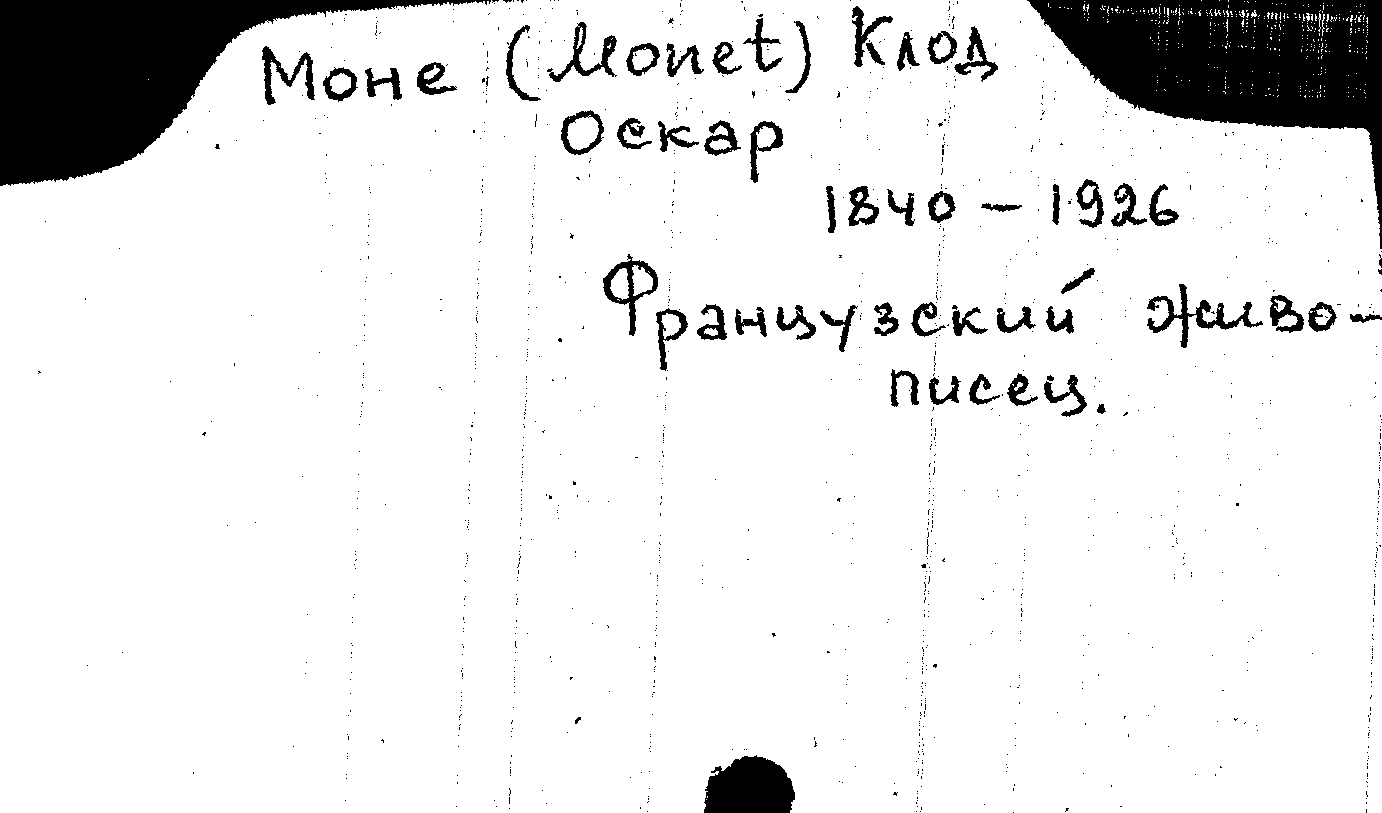 Моне (Monet) Клод
Оскар
1840 – 1926
Французский живо-
писец.